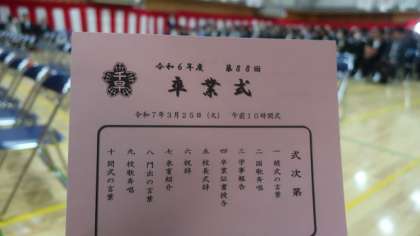 令和6年度 第88回
卒業式
令和7年3月25日(火) 午前10時開式
式次第
一 開式の言葉
二 国歌斉唱
三 学事報告
四 卒業証書授与
五 校長式辞
六 祝辞
七 来賓紹介
八 門出の言葉
九 校歌斉唱
十 閉式の言葉